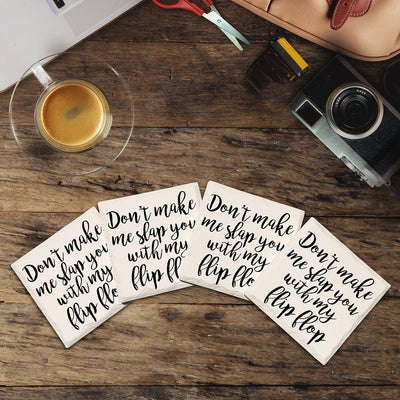 Don't make
me slap you
with my
flip flo
Don't make
me slap you
with my
flip fl
Don't make
me slap you
with my
flip flo
Don't make
me slap you
with my
flip flop